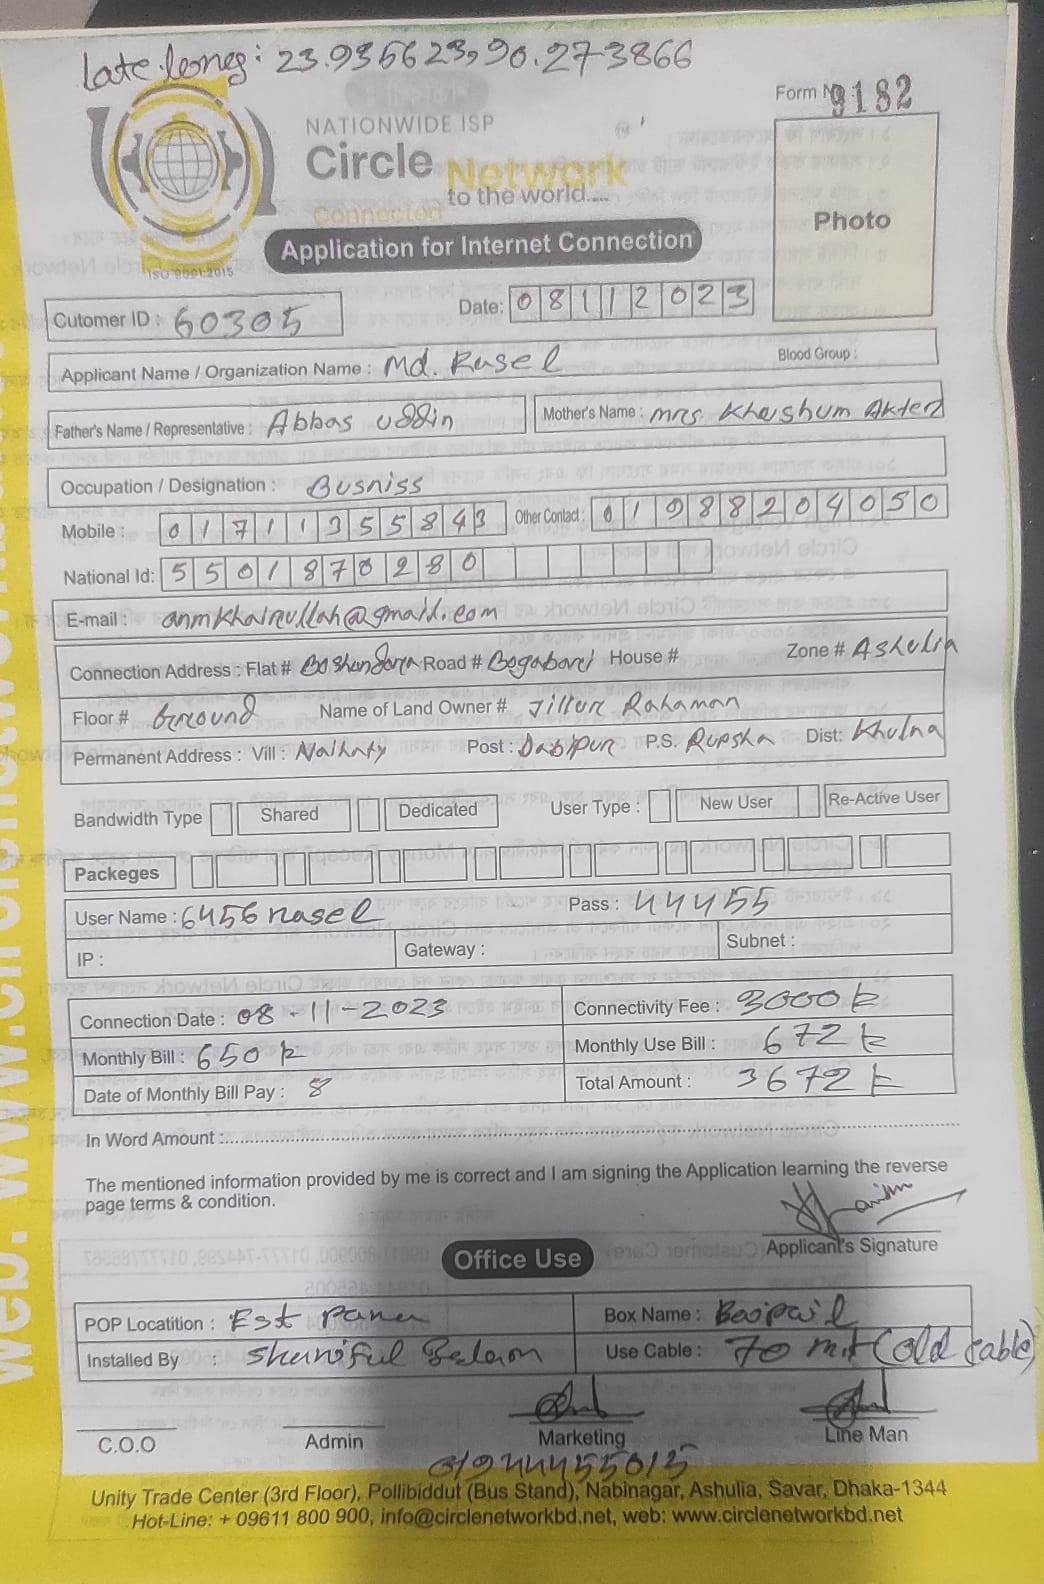 Late. long: 23.935623, 90.273866
Form No 9182
NATIONWIDE ISP
Circle Network
Connected to the world.....
ISO 9001:2015
Photo
Application for Internet Connection
Cutomer ID : 60305
Date: 08112023
Applicant Name / Organization Name : Md. Rasel
Blood Group :
Father's Name / Representative : Abbas uddin
Mother's Name : mrs. Khashum Akter
Occupation / Designation : Busniss
Mobile : 01711355843
Other Contact : 01988204050
National Id: 5501870280
E-mail : anmkhairullah@gmail.com
Connection Address : Flat # Boshundora Road # Bogabari House # Zone # Ashulia
Floor # Ground Name of Land Owner # Jillur Rahaman
Permanent Address : Vill : Naihaty Post : Dabipur P.S. Rupsha Dist: Khulna
Bandwidth Type Shared Dedicated User Type : New User Re-Active User
Packeges
User Name : 6456rasel Pass : 44455
IP : Gateway : Subnet :
Connection Date : 08-11-2023 Connectivity Fee : 3000 tk
Monthly Bill : 650 tk Monthly Use Bill : 672 tk
Date of Monthly Bill Pay : 8 Total Amount : 3672 tk
In Word Amount :
The mentioned information provided by me is correct and I am signing the Application learning the reverse
page terms & condition.
Applicant's Signature
Office Use
POP Locatition : Est Para Box Name : Baipail
Installed By : Shariful Islam Use Cable : 70 mit (old cable)
C.O.O Admin Marketing Line Man
01944455013
Unity Trade Center (3rd Floor), Pollibiddut (Bus Stand), Nabinagar, Ashulia, Savar, Dhaka-1344
Hot-Line: + 09611 800 900, info@circlenetworkbd.net, web: www.circlenetworkbd.net